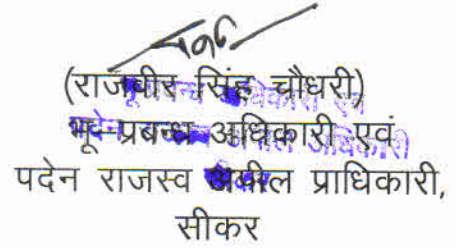 (राजबीर सिंह चौधरी)
भू-प्रबन्ध अधिकारी एवं
पदेन राजस्व अपील प्राधिकारी,
सीकर